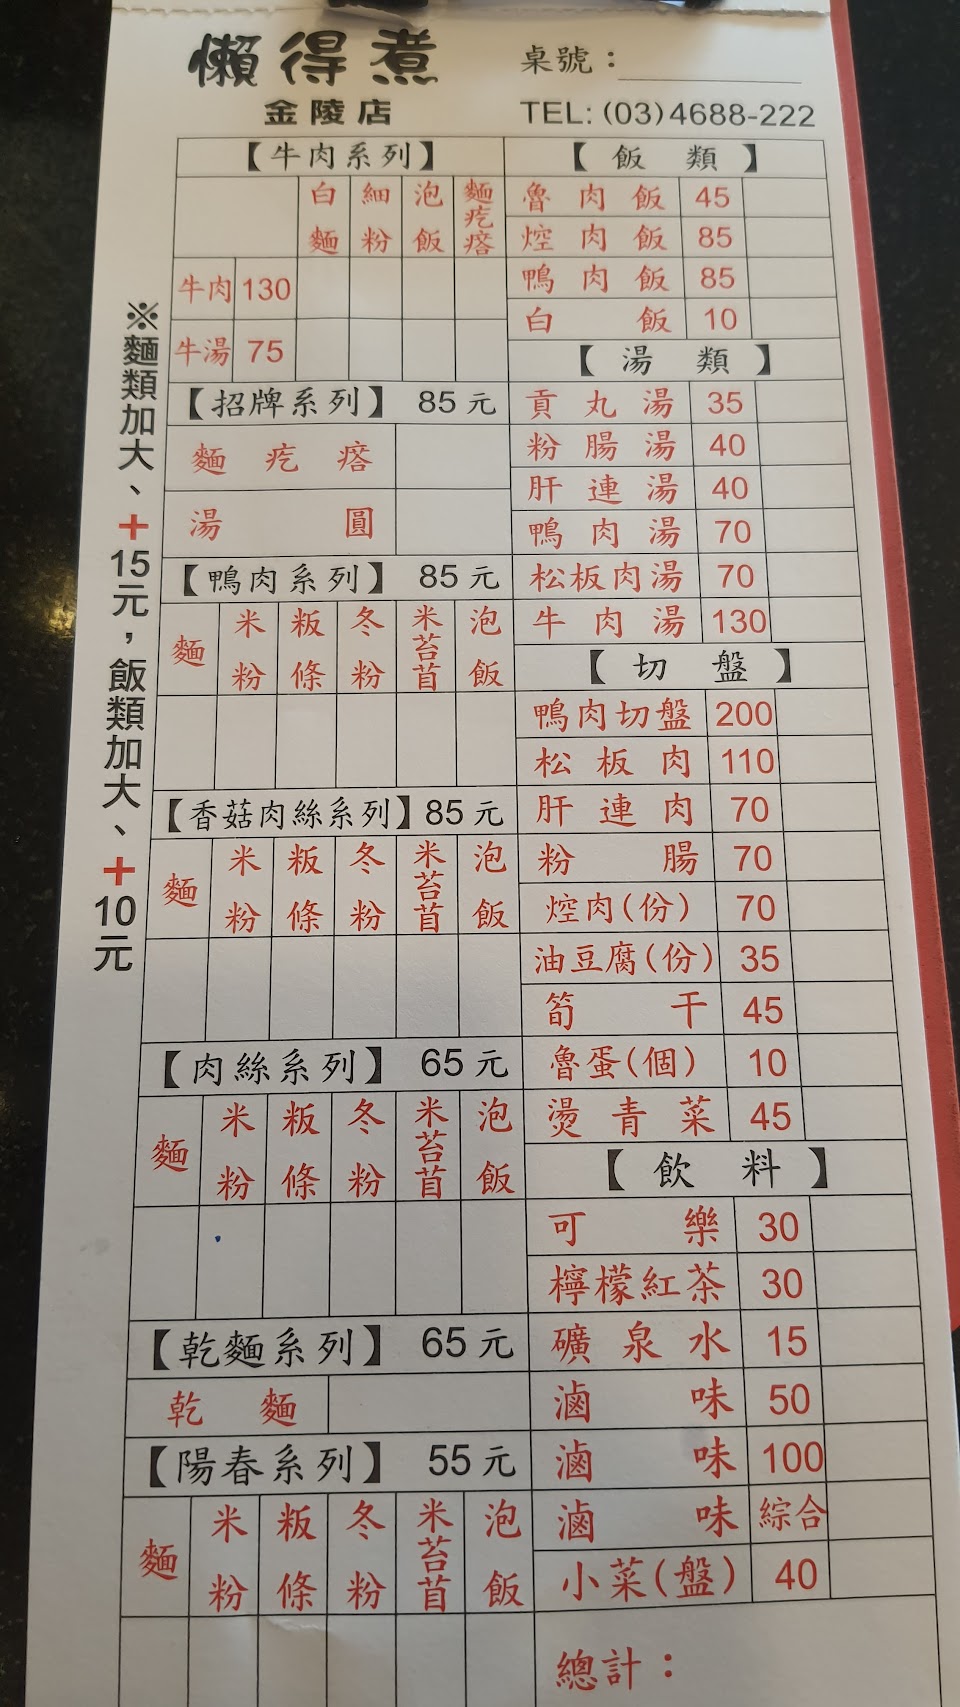 懶得煮
金陵店
桌號：
TEL:(03)4688-222
※麵類加大、+15元，飯類加大、+10元
【牛肉系列】
白麵 細粉 泡飯 麵疙瘩
牛肉 130
牛湯 75
【招牌系列】 85元
麵疙瘩
湯圓
【鴨肉系列】 85元
麵 米粉 粄條 冬粉 米苔苜 泡飯
【香菇肉絲系列】85元
麵 米粉 粄條 冬粉 米苔苜 泡飯
【肉絲系列】 65元
麵 米粉 粄條 冬粉 米苔苜 泡飯
【乾麵系列】 65元
乾麵
【陽春系列】 55元
麵 米粉 粄條 冬粉 米苔苜 泡飯
【飯類】
魯肉飯 45
焢肉飯 85
鴨肉飯 85
白飯 10
【湯類】
貢丸湯 35
粉腸湯 40
肝連湯 40
鴨肉湯 70
松板肉湯 70
牛肉湯 130
【切盤】
鴨肉切盤 200
松板肉 110
肝連肉 70
粉腸 70
焢肉(份) 70
油豆腐(份) 35
筍干 45
魯蛋(個) 10
燙青菜 45
【飲料】
可樂 30
檸檬紅茶 30
礦泉水 15
滷味 50
滷味 100
滷味 綜合
小菜(盤) 40
總計：